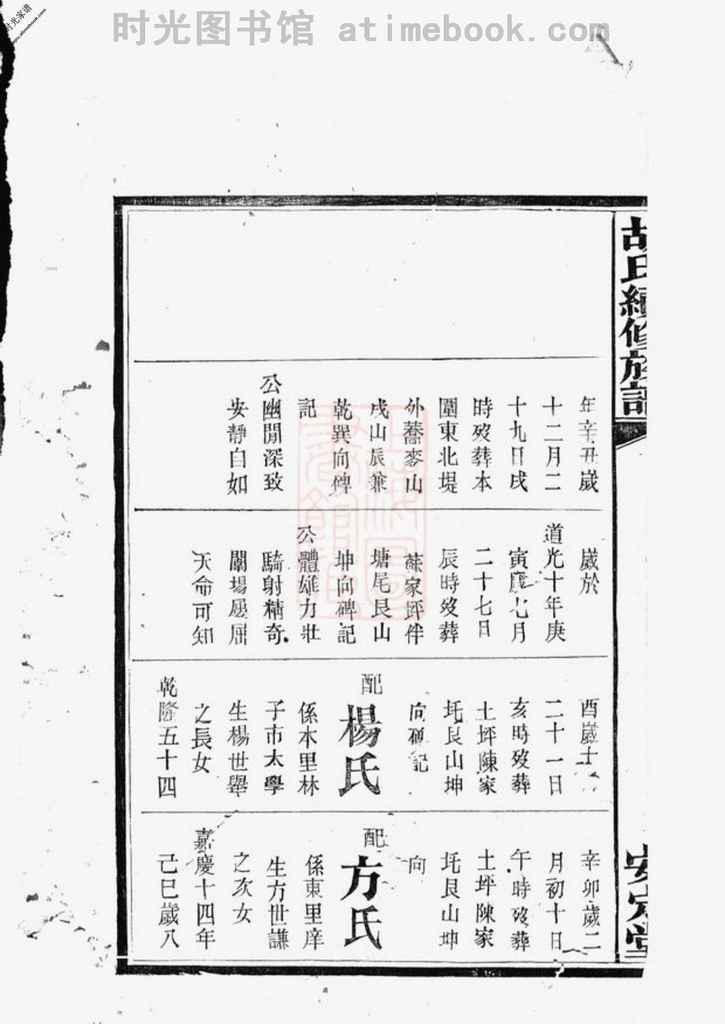 时光图书馆 atimebook.com
胡氏續修族譜
安定堂
年辛丑歲
十二月二
十九日戌
時歿葬本
圍東北堤
外蕎麥山
戌山辰兼
乾巽向碑
記
公幽閒深致
安靜自如
歲於
道光十年庚
寅歲七月
二十七日
辰時歿葬
蘇家坪伴
塘尾艮山
坤向碑記
公體雄力壯
騎射精奇
闈場屢屈
天命可知
酉歲十
二十一日
亥時歿葬
土坪陳家
圫艮山坤
向碑記
配
楊氏
係本里林
子市太學
生楊世舉
之長女
乾隆五十四
辛卯歲二
月初十日
午時歿葬
土坪陳家
圫艮山坤
向
配
方氏
係東里庠
生方世謙
之次女
嘉慶十四年
己巳歲八